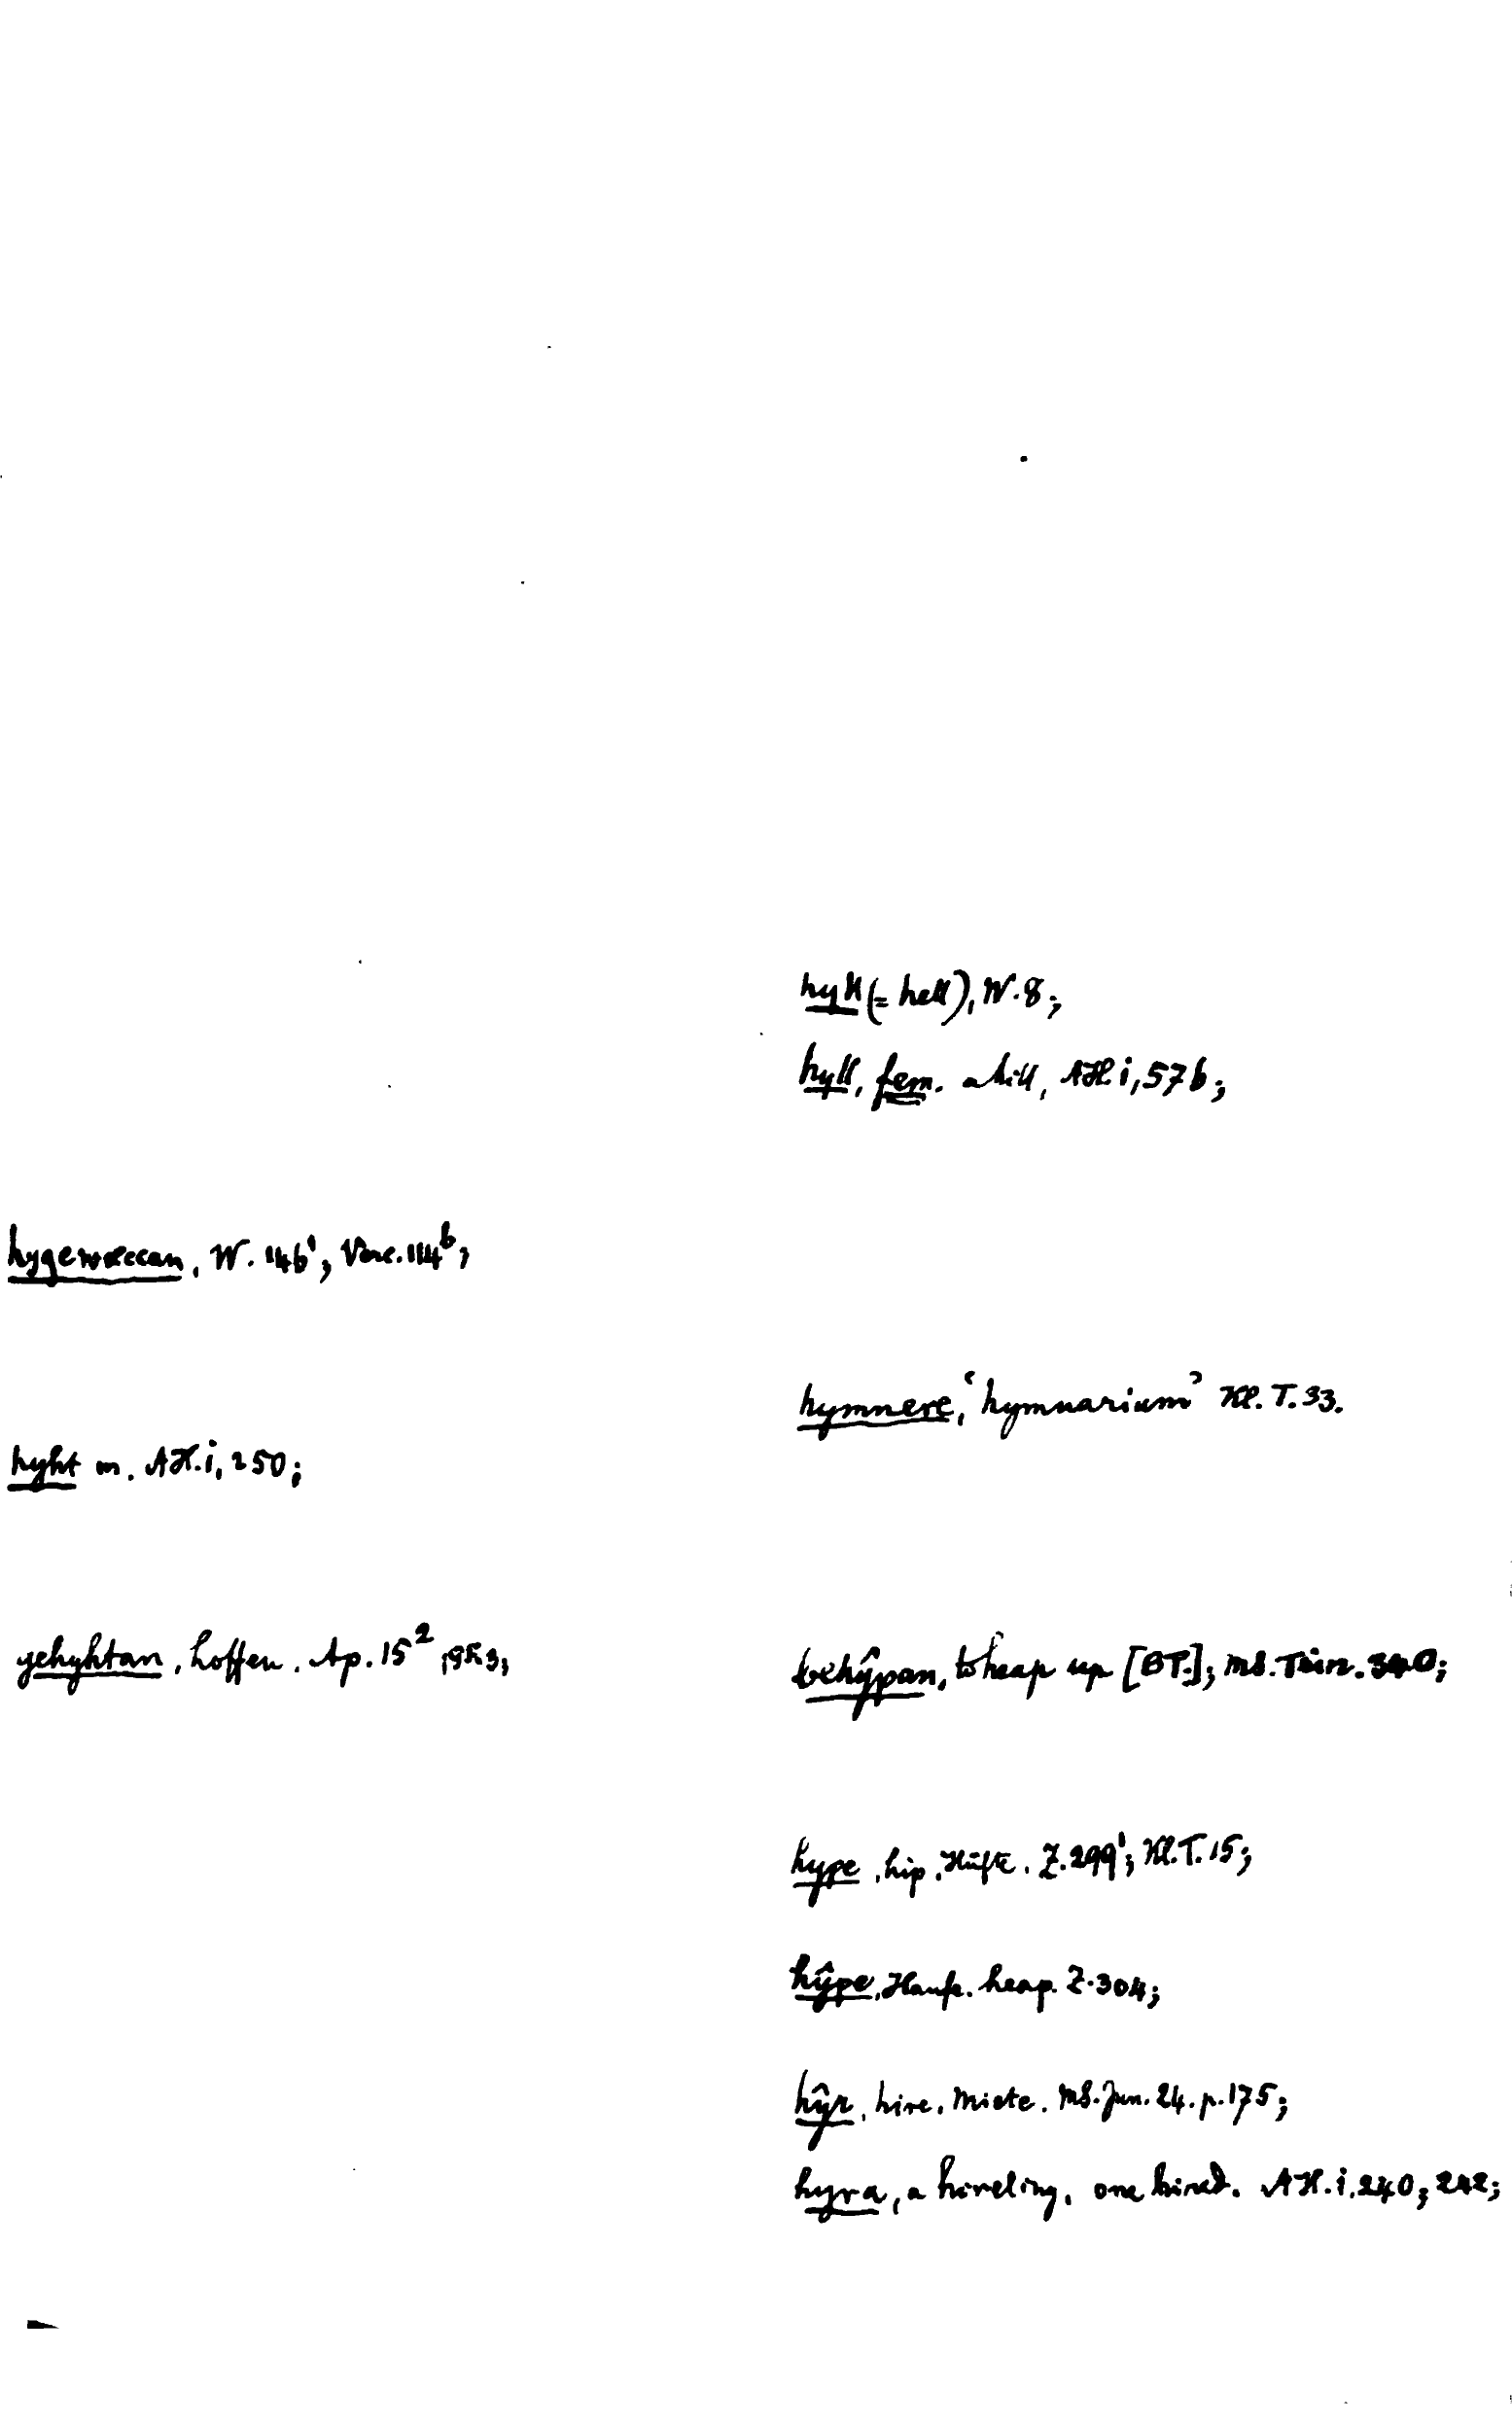 hygewæccan, W. 146¹; Verc. 114ᵇ;
hyht m. AH. i, 250;
gehyhtan, hoffen. Ap. 15²
hyll (= hell), W. 8;
hyll, fem. a hill, AH i, 57b;
hymnere, ‘hymnarium’ Kl. T. 33.
behŷpan, to heap up [BT.]; MS. 340;
hype, hip, Hüfte. Z. 299¹; Kl. T. 15;
hŷpe, Haufe. heap. Z. 304;
hŷr, hire, Miete. MS. Jun. 24. p. 175;
hyra, a hireling, one hired. AH. i. 240; 242;